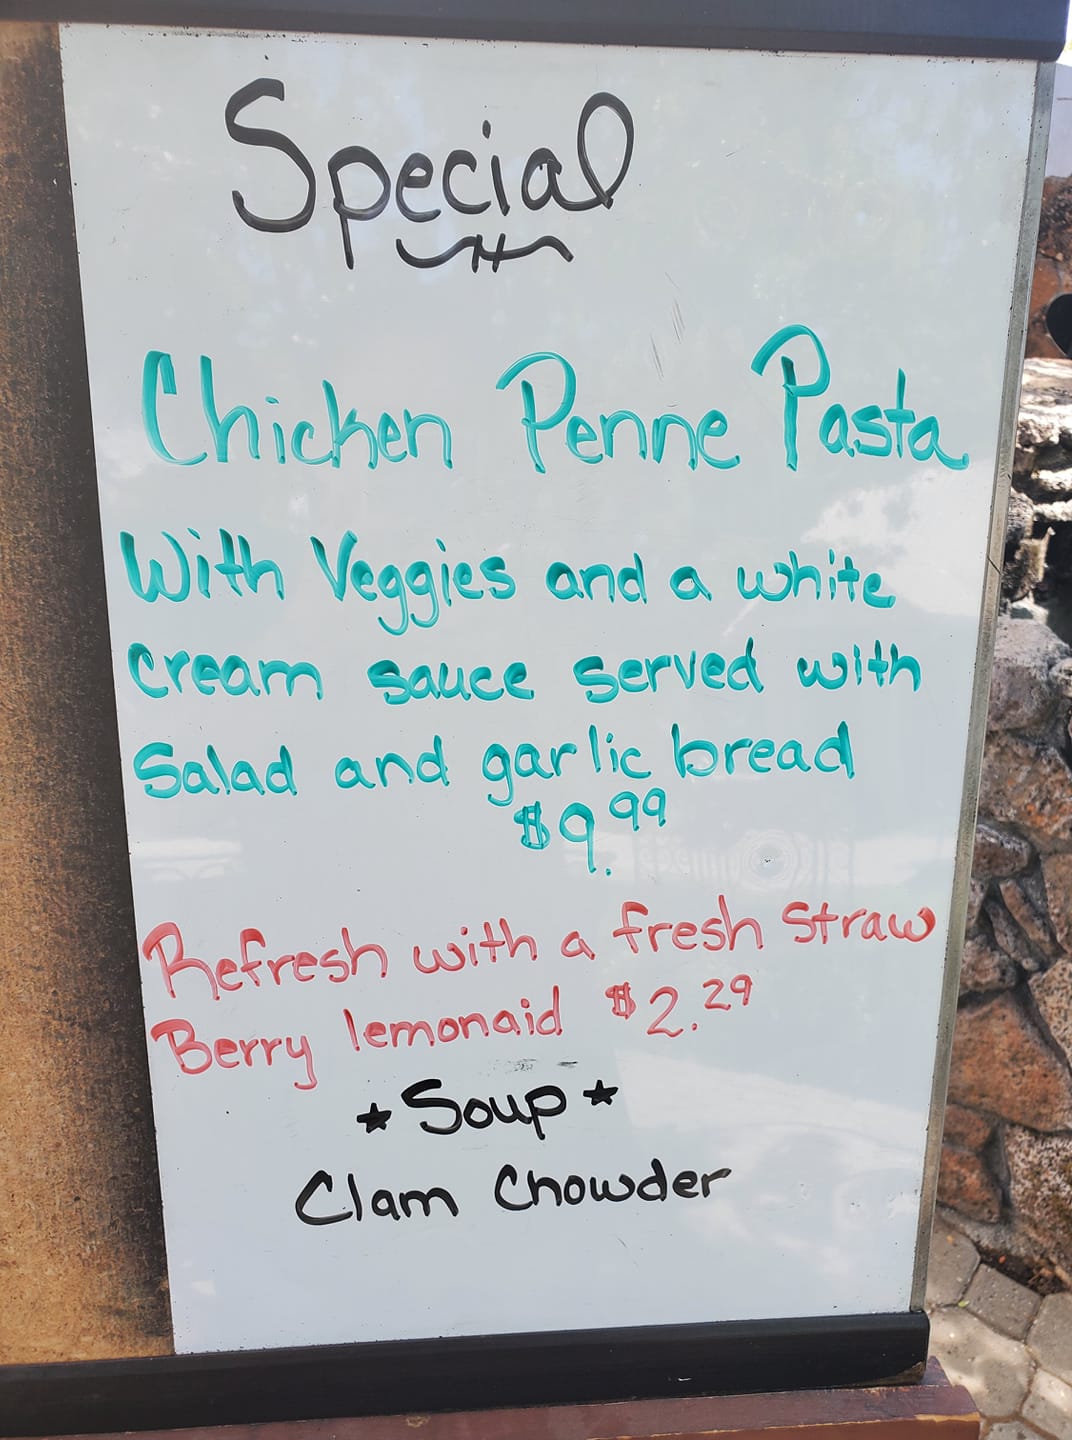 Special
Chicken Penne Pasta
With Veggies and a white
cream sauce served with
Salad and garlic bread
$9.99
Refresh with a fresh straw
Berry lemonaid $2.29
★Soup★
Clam Chowder